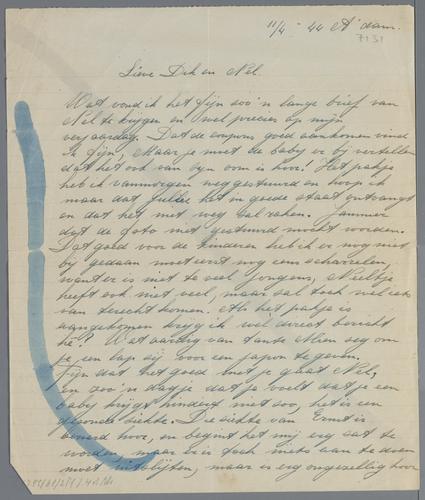 11/4 - 44 A'dam.
7131
Lieve Dik en Nel.
Wat vond ik het fijn zoo'n lange brief van
Nel te krijgen en wel precies op mijn
verjaardag. Dat de coupons goed aankomen vind
ik fijn, Maar je moet de baby er bij vertellen
dat het ook van zyn oom is hoor! Het pakje
heb ik vanmorgen weggestuurd en hoop ik
maar dat jullie het in goede staat ontvangt
en dat het niet weg zal raken. Jammer
dat de foto niet gestuurd mocht worden.
Dat goed voor de kinderen heb ik er nog niet
by gedaan moet eerst nog eens scharrelen,
want er is niet te veel jongens,
heeft ook niet veel, maar zal toch wel iets
van terecht komen. Als het pakje is
aangekomen kryg ik wel direct bericht
hè? Wat aardig van tante Mien zeg om
je een lap zij voor een japon te geven.
Fijn dat het goed met je gaat Nel,
en zoo'n dagje dat je voelt dat je een
baby krygt hindert niet zoo, het is een
gezonde ziekte. Die ziekte van Ernst is
beroerd hoor, en begint het mij erg zat te
worden, maar er is toch niets aan te doen
moet uitblijten, maar is erg ongezellig hoor